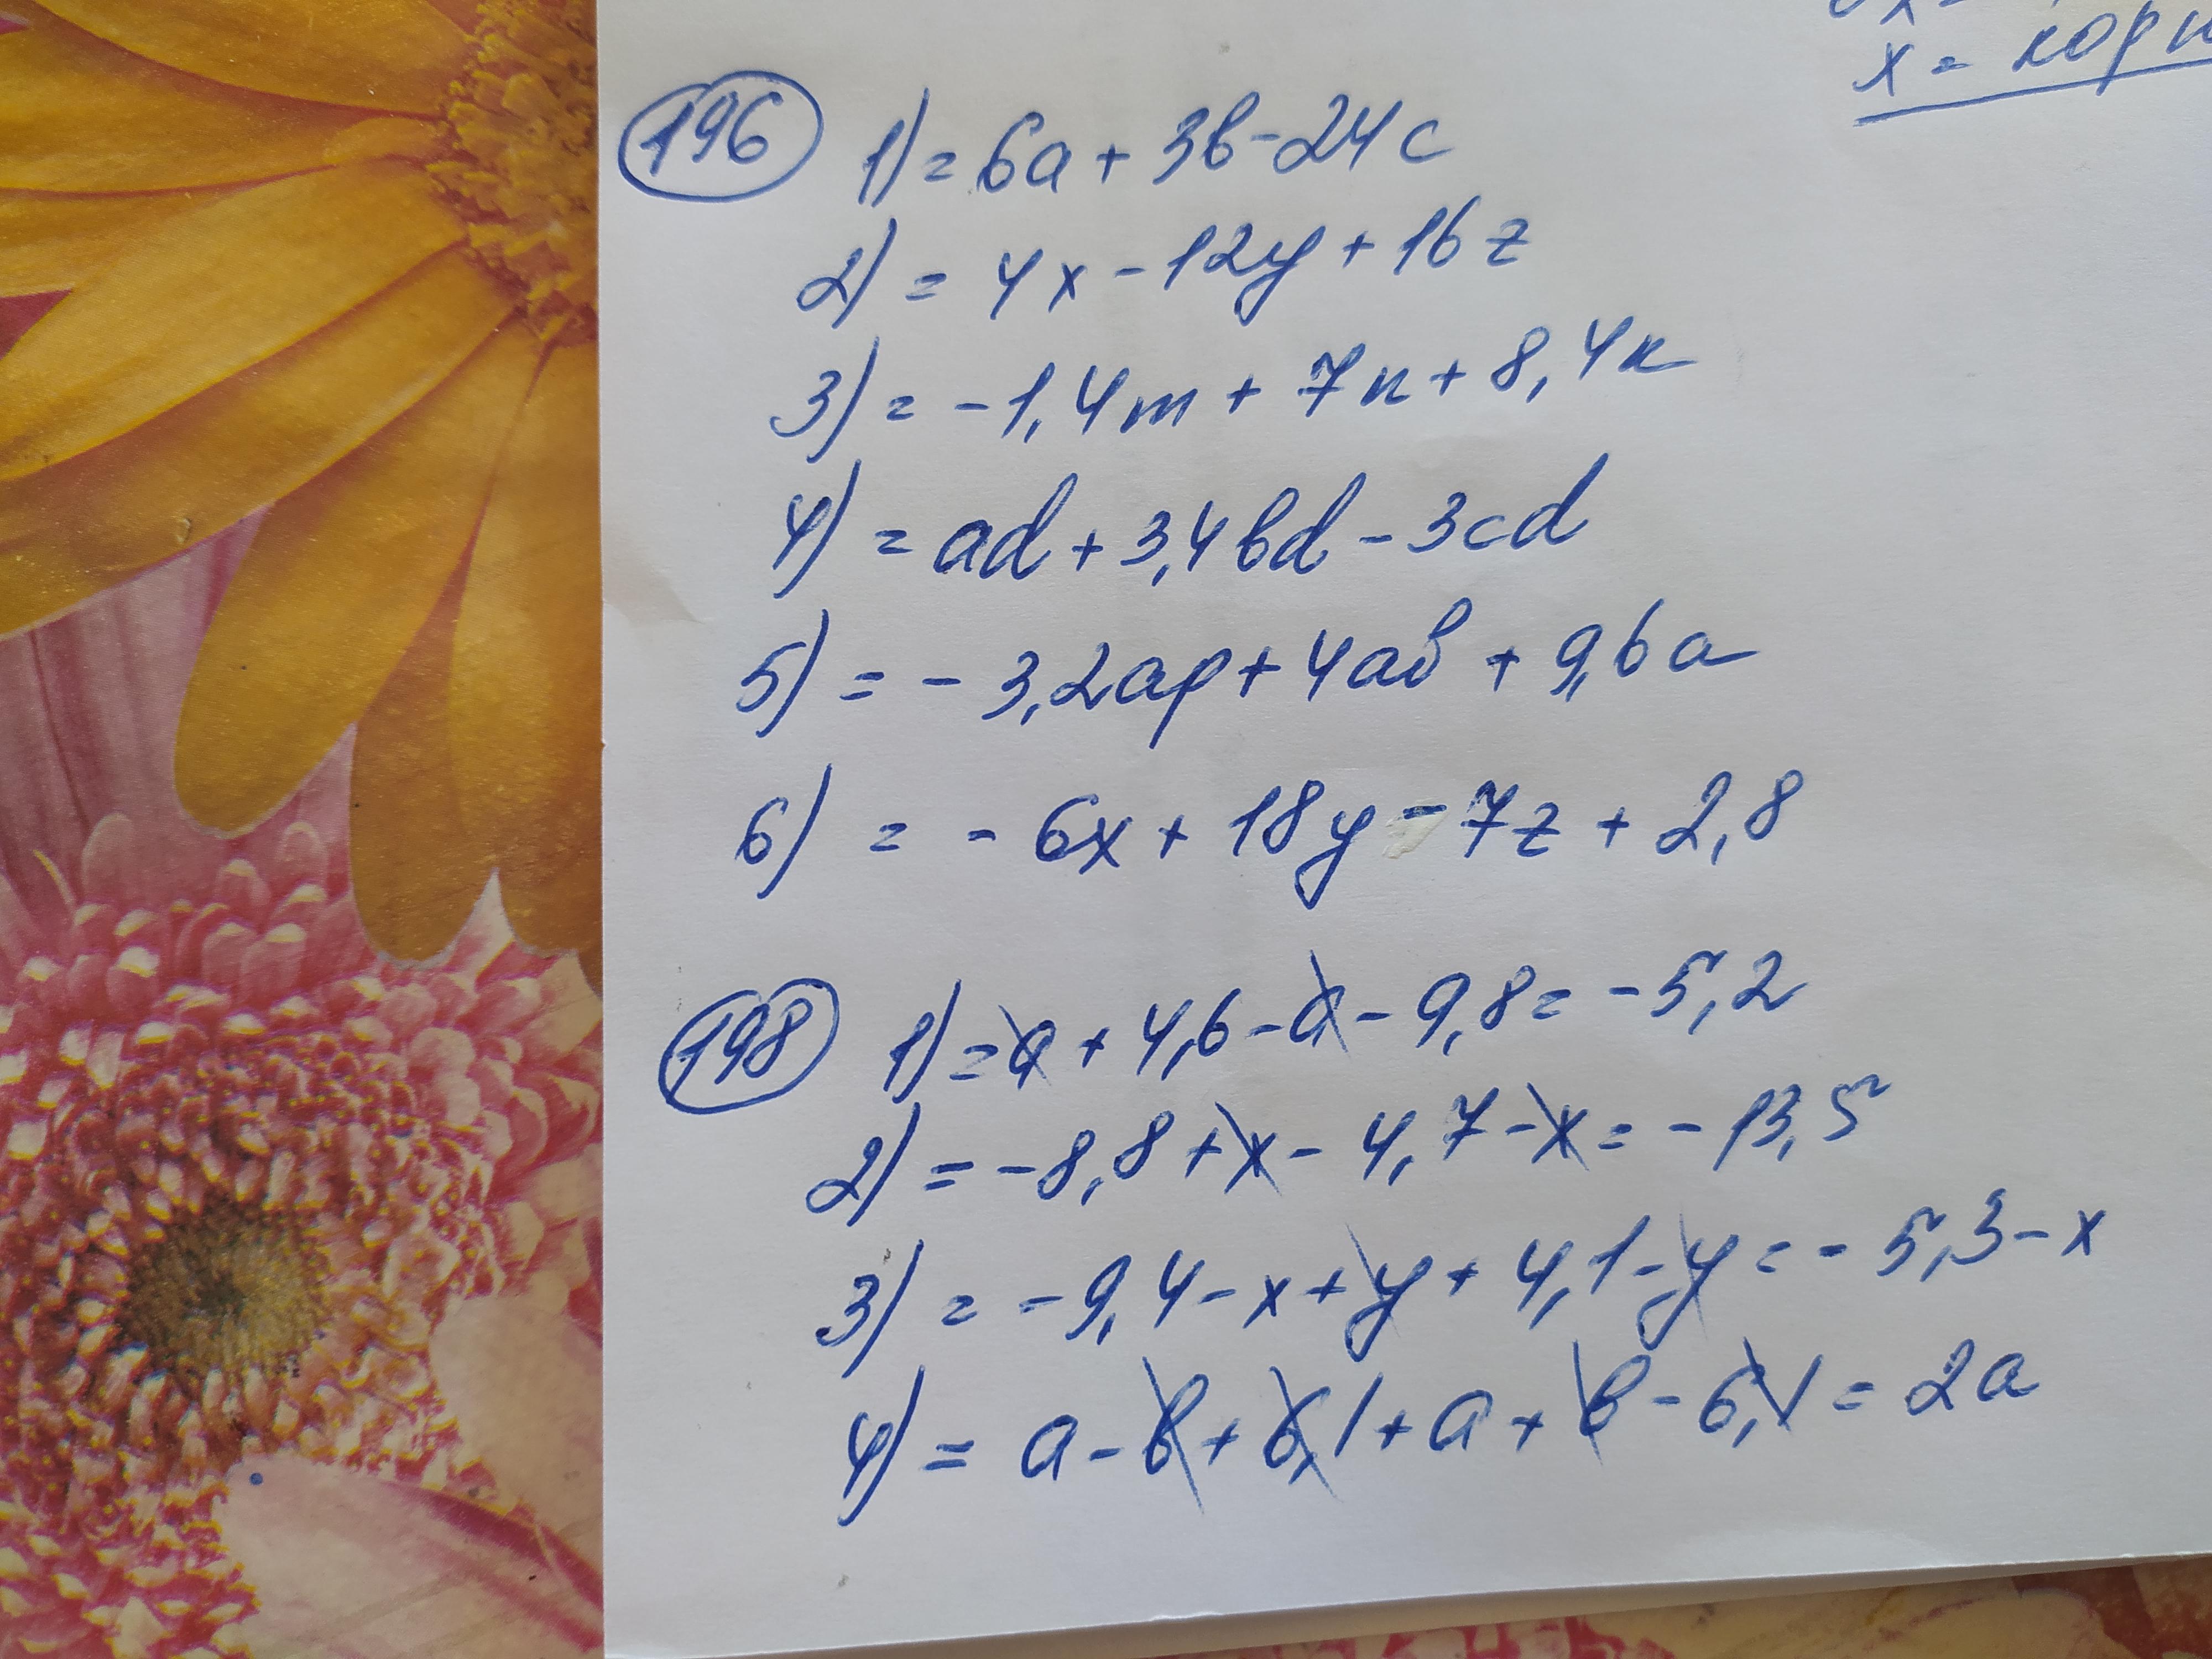 x = корн
196 1) = 6a + 3b - 24c
2) = 4x - 12y + 16z
3) = -1,4m + 7n + 8,4k
4) = ad + 3,4bd - 3cd
5) = -3,2ap + 4ab + 9,6a
6) = -6x + 18y - 7z + 2,8
198 1) = a + 4,6 - a - 9,8 = -5,2
2) = -8,8 + x - 4,7 - x = -13,5
3) = -9,4 - x + y + 4,1 - y = -5,3 - x
4) = a - b + 6,1 + a + b - 6,1 = 2a